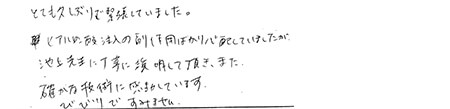 とても久しぶりで緊張していました。
ヒアルロン酸注入の副作用ばかり心配していましたが
池上先生に丁寧に説明して頂き、また
確かな技術に感動しています。
びびりですみません。